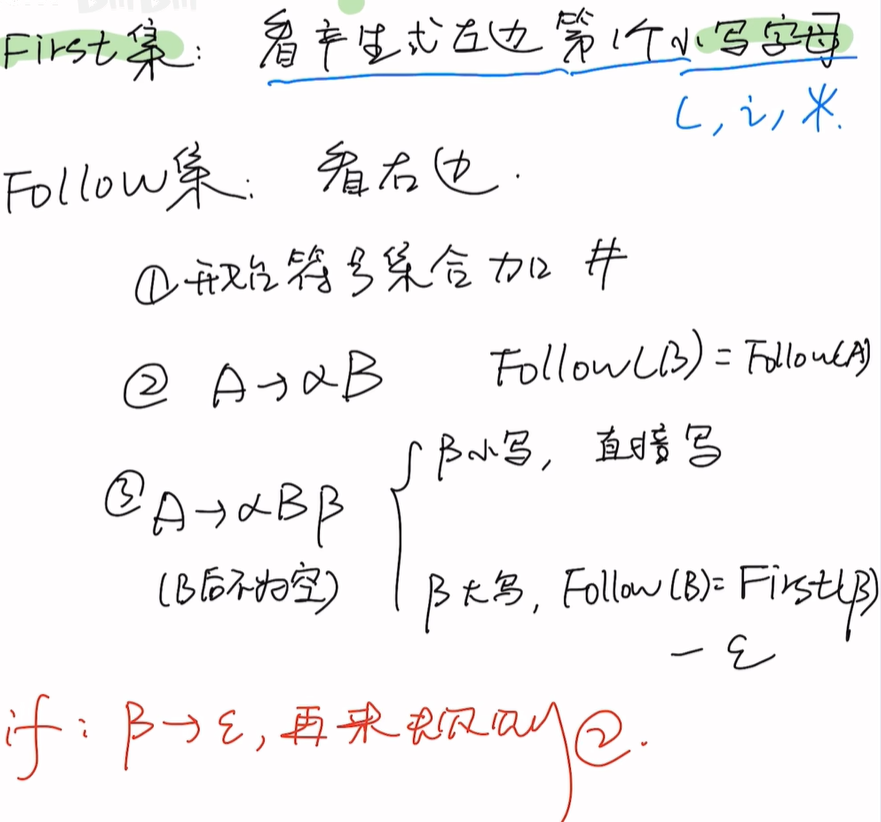 First集: 看产生式左边第1个小写字母
(, i, *.
Follow集: 看右边.
①开始符号集合加 #
② A→αB Follow(B)=Follow(A)
③ A→αBβ { β小写, 直接写
(B后不为空) β大写, Follow(B)=First(β)
-ε
if: β→ε, 再来规则②.